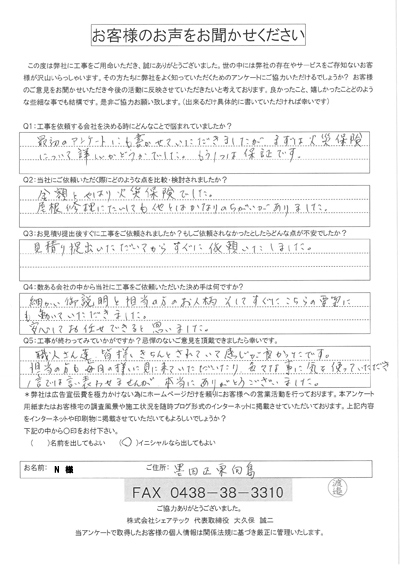 お客様のお声をお聞かせください
この度は弊社に工事をご用命いただき、誠にありがとうございました。世の中には弊社の存在やサービスをご存知ないお客
様が沢山いらっしゃいます。その方たちに弊社をよく知っていただくためのアンケートにご協力いただけるでしょうか? お客様
のご意見をお聞かせいただき今後の活動に反映させていただきたいと考えております。良かったこと、嬉しかったことどのよう
な些細な事でも結構です。是非ご協力お願い致します。(出来るだけ具体的に書いていただければ幸いです)
Q1:工事を依頼する会社を決める時にどんなことで悩まれていましたか?
最初のアンケートにも書かせていただきましたが まずは火災保険
について詳しいかどうかでした。もう1つは保証です。
Q2:当社にご依頼いただく際にどのような点を比較・検討されましたか?
金額とやはり火災保険でした。
屋根修理にたいしても他とはかなりのちがいがありました。
Q3:お見積り提出後すぐに工事をご依頼されましたか?もしご依頼されなかったとしたらどんな点が不安でしたか?
見積り提出いただいてからすぐに依頼いたしました。
Q4:数ある会社の中から当社に工事をご依頼いただいた決め手は何ですか?
細かい御説明と担当の方のお人柄 そしてすぐにこちらの要望に
も動いていただきました。
安心してお任せできると思いました。
Q5:工事が終わってみていかがですか?忌憚のないご意見を頂戴できましたら幸いです。
職人さん達 皆様 きちんとされていて感じが良かったです。
担当の方も毎日の様に見に来ていただいたり、色々な事に気を使っていただき
1言では言い表わせませんが 本当にありがとうございました。
*弊社は広告宣伝費を極力かけない為にホームページだけを頼りにお客様への営業活動を行っております。本アンケート
用紙またはお客様宅の調査風景や施工状況を随時ブログ形式のインターネットに掲載させていただいております。上記内容
をインターネットや印刷物に掲載させていただいてもよろしいでしょうか?
下記の中から〇印をお付下さい。
( )名前を出してもよい (〇)イニシャルなら出してもよい
お名前: N 様 ご住所: 墨田区東向島
FAX 0438-38-3310
渡邉
ご協力ありがとうございました。
株式会社シェアテック 代表取締役 大久保 誠二
当アンケートで取得したお客様の個人情報は関係法規に基づき厳正に管理いたします。